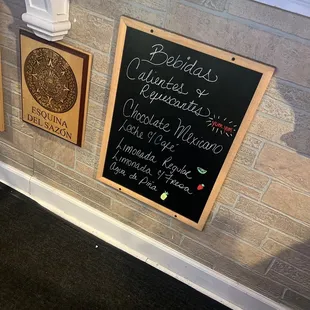 ESQUINA
DEL SAZÓN
Bebidas
Calientes &
Refrescantes
yum yum!
Chocolate Mexicano
Leche y Cafe
Limonada Regular
Limonada y Fresa
Agua de Piña